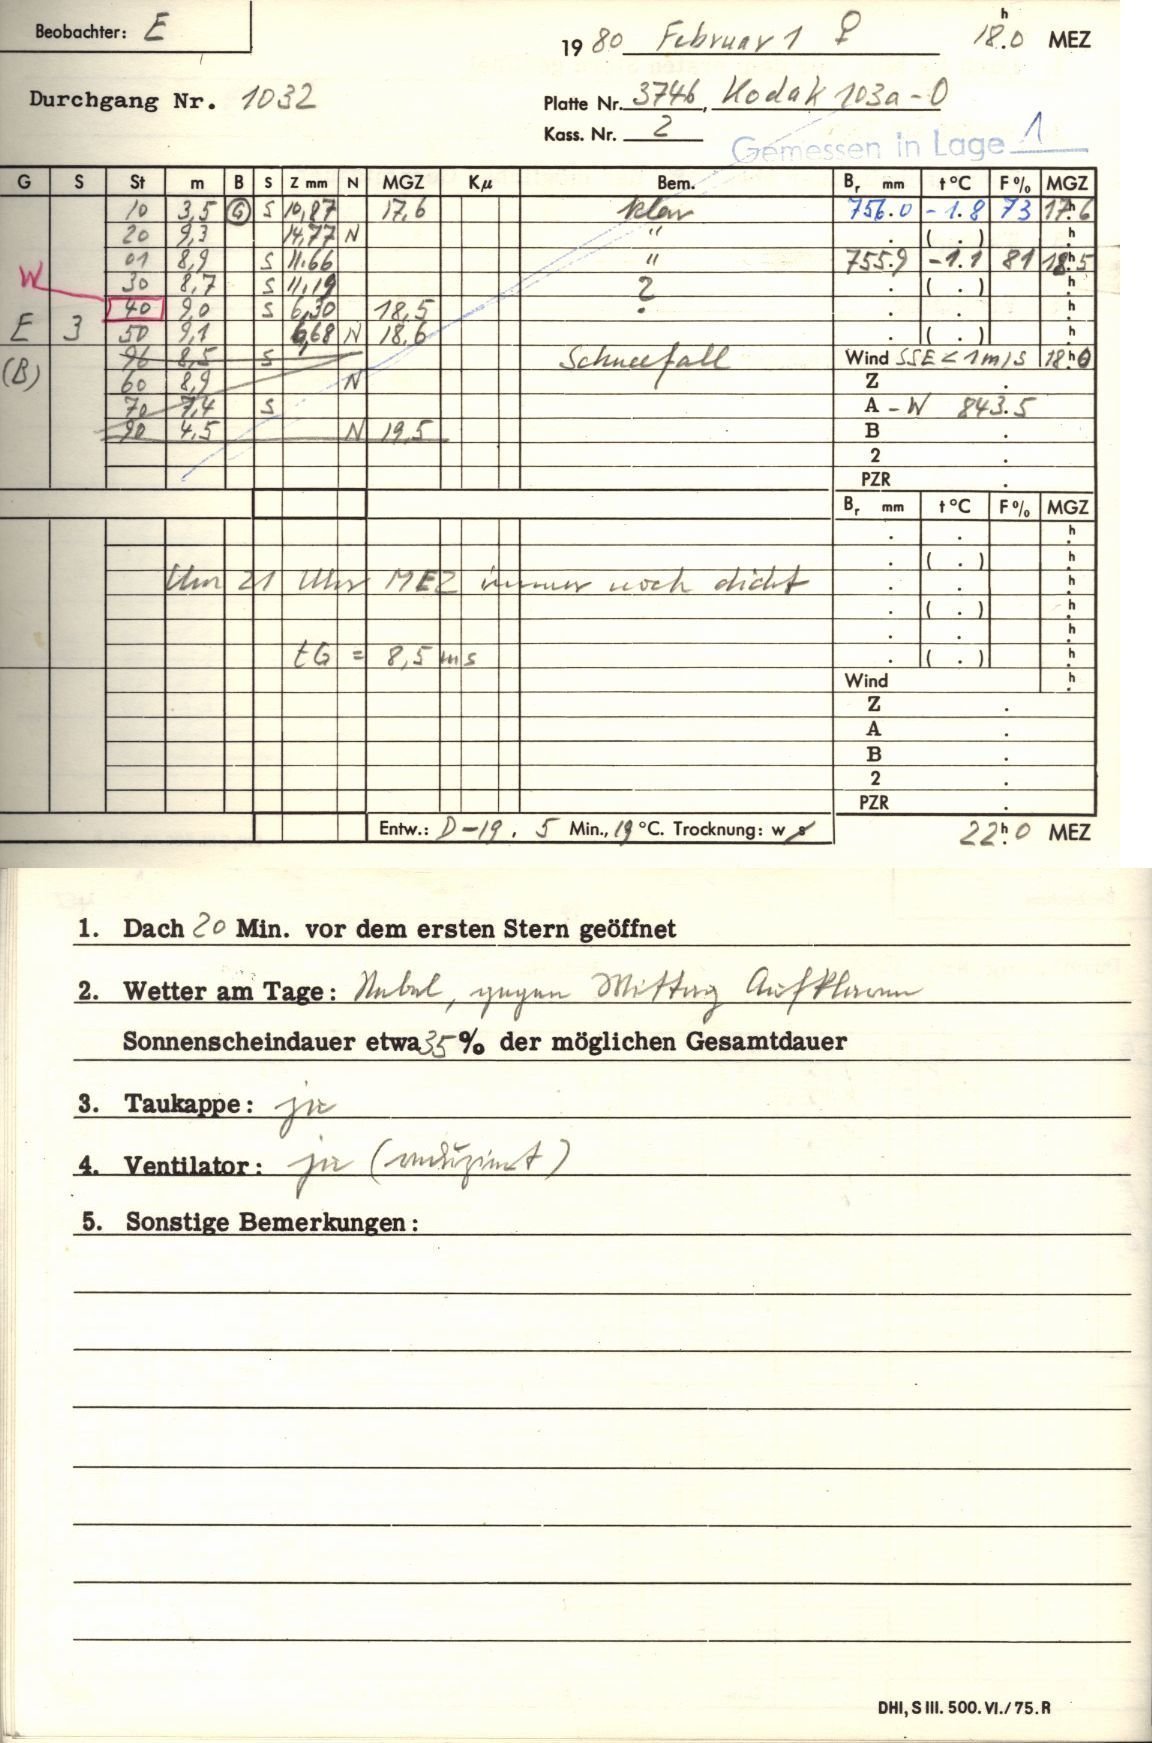 Beobachter: E
19 80 Februar 1 ♀ 18.0 h MEZ
Durchgang Nr. 1032
Platte Nr. 3746, Kodak 103a-O
Kass. Nr. 2
Gemessen in Lage 1
G S St m B S Z mm N MGZ Kμ Bem. Br mm t °C F % MGZ
10 3,5 G S 10,87 17,6 klar 756.0 -1.8 73 17.6 h
20 9,3 14,77 N " . ( . ) h
01 8,9 S 11.66 " 755.9 -1.1 81 18.5 h
W 30 8,7 S 11,19 ? . ( . ) h
40 9,0 S 6,30 18,5 . . h
E 3 50 9,1 6,68 N 18,6 . ( . ) h
(B) 96 8,5 S Schneefall Wind SSE < 1 m/s 18.0 h
60 8,9 N Z .
70 7,4 S A -W 843.5
90 4,5 N 19,5 B .
2 .
PZR .
Br mm t °C F % MGZ
. . h
. ( . ) h
Um 21 Uhr MEZ immer noch dicht . . h
. ( . ) h
. . h
tG = 8,5 ms . ( . ) h
Wind h
Z .
A .
B .
2 .
PZR .
Entw.: D-19. 5 Min., 19 °C. Trocknung: w s
22.0 h MEZ
1. Dach 20 Min. vor dem ersten Stern geöffnet
2. Wetter am Tage: Nebel, gegen Mittag Aufklaren
Sonnenscheindauer etwa 35 % der möglichen Gesamtdauer
3. Taukappe: ja
4. Ventilator: ja (reduziert)
5. Sonstige Bemerkungen:
DHI, S III. 500. VI./75. R